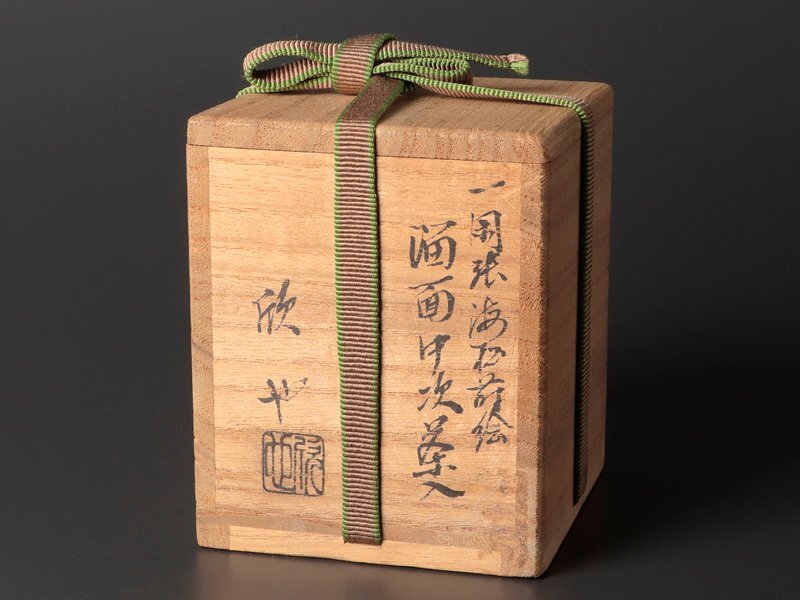 一閑張海松蒔絵
溜面中次茶入
欣也